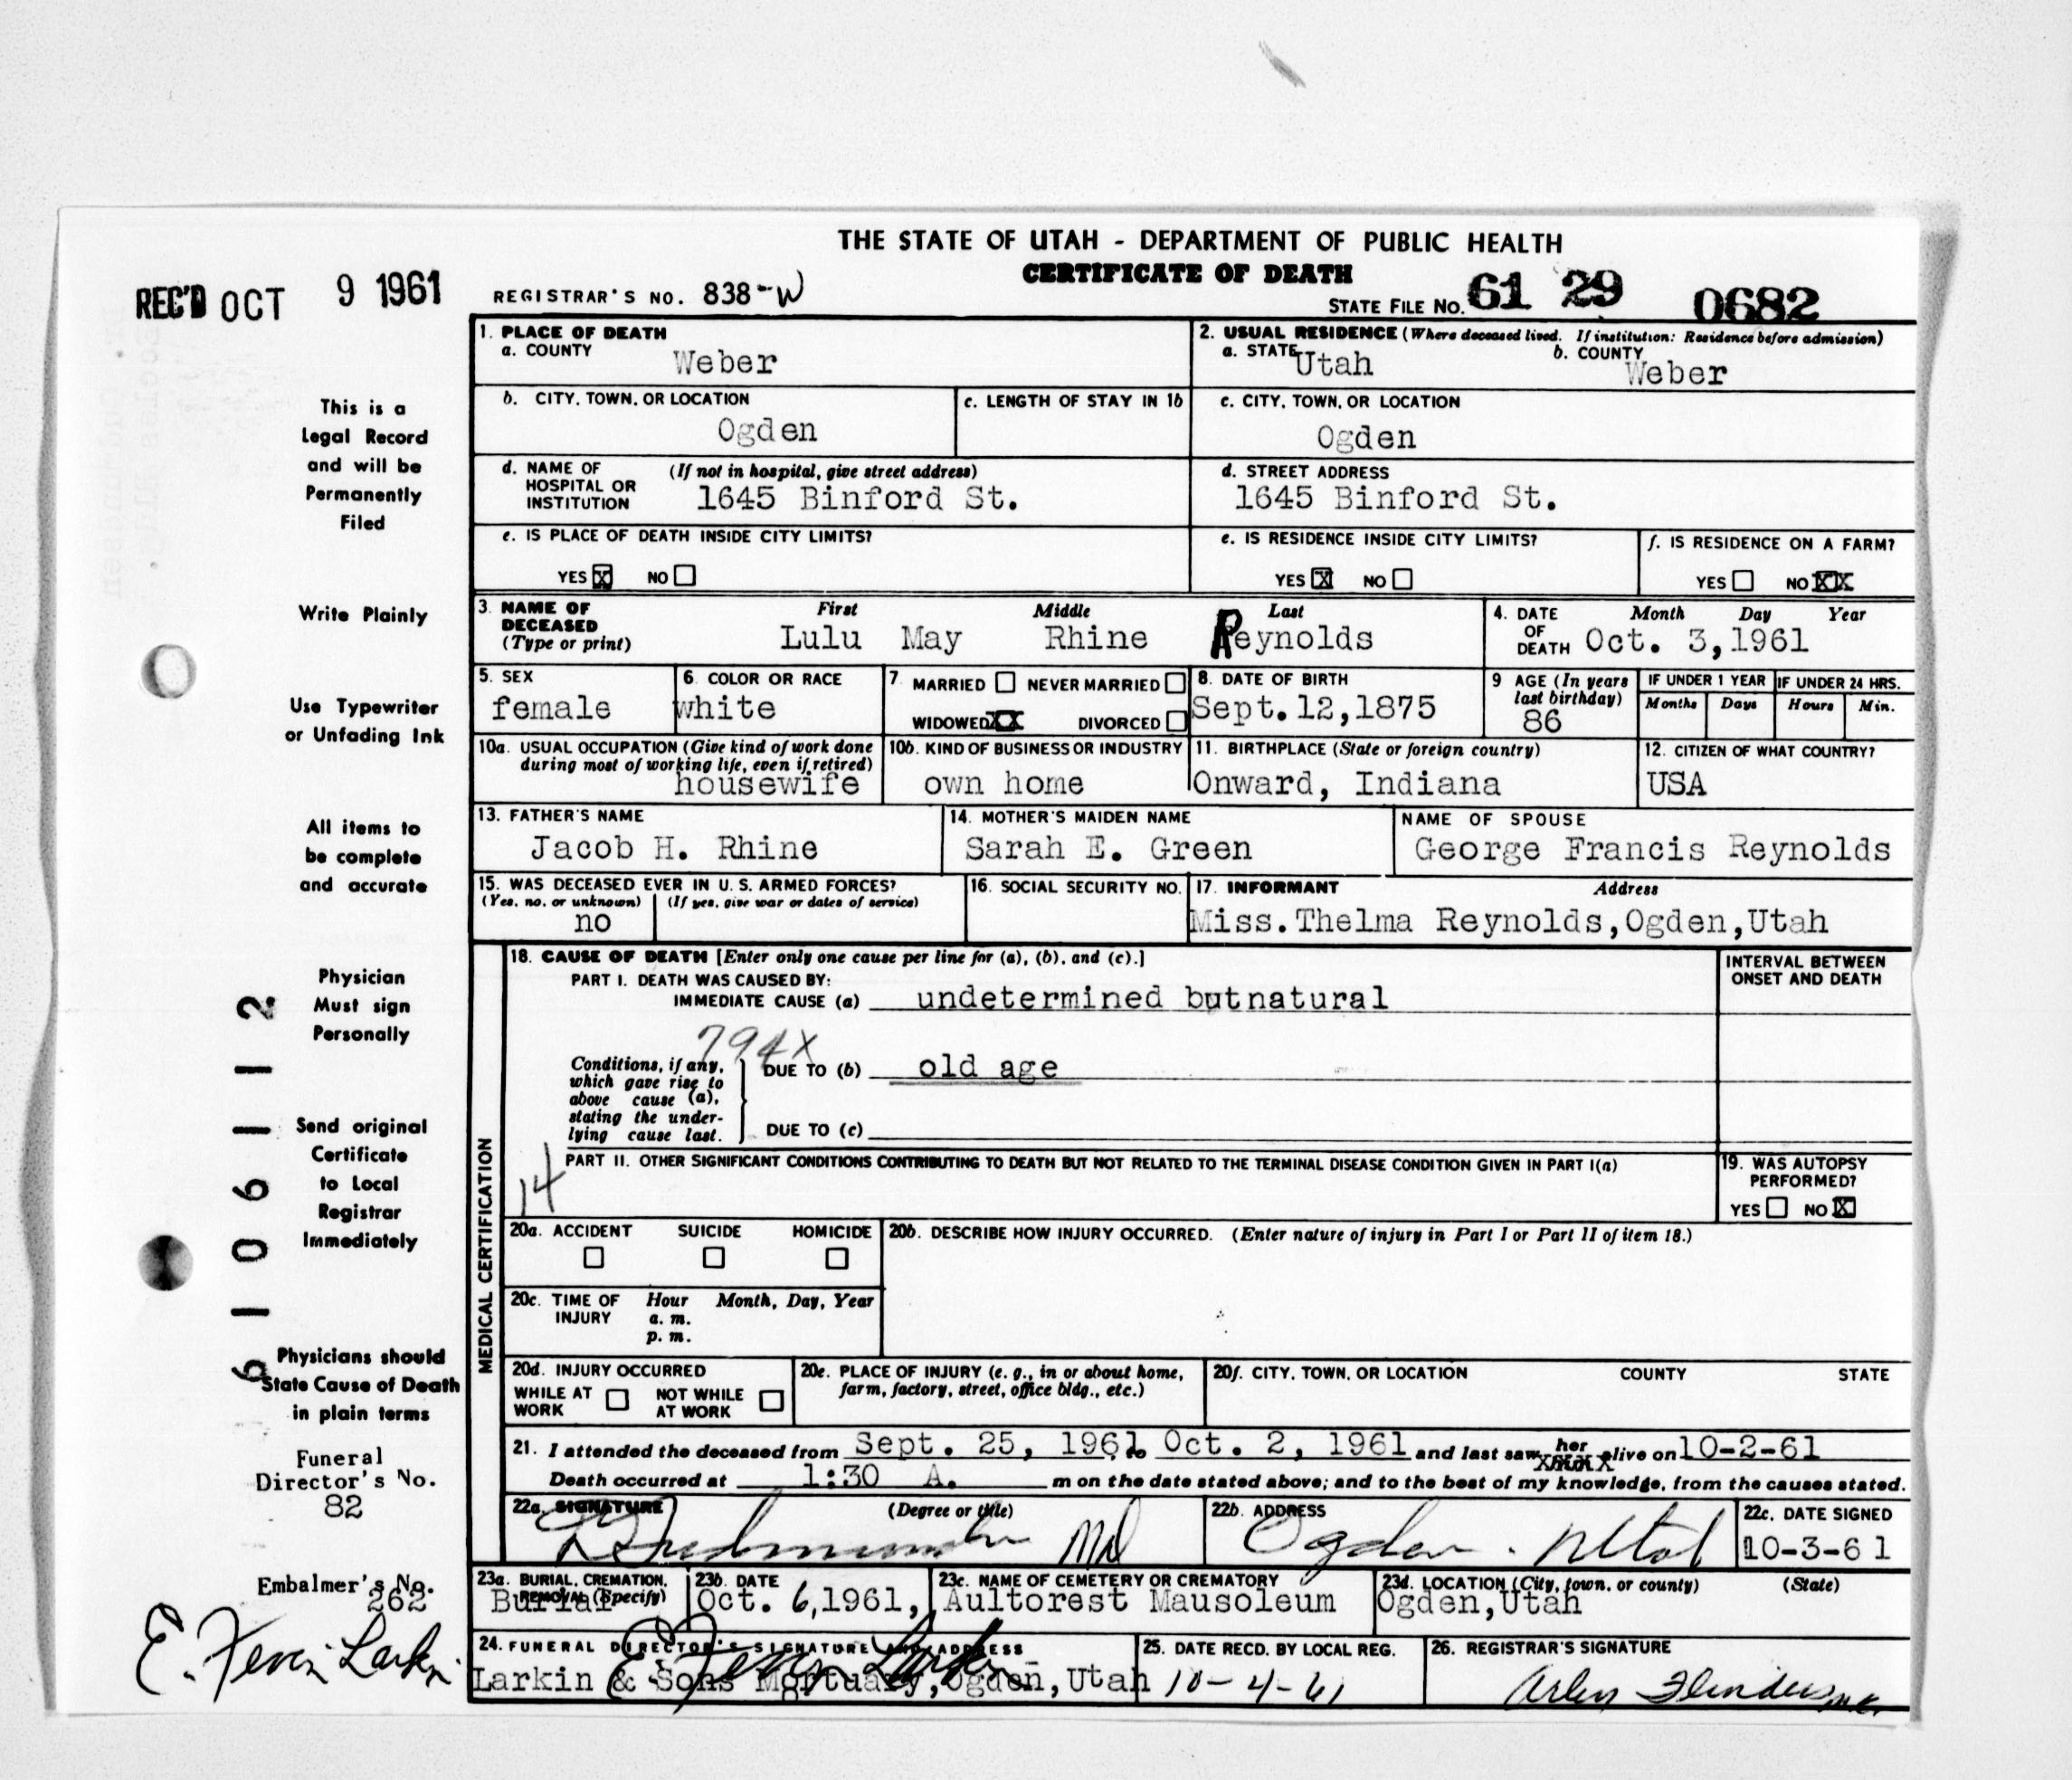 THE STATE OF UTAH - DEPARTMENT OF PUBLIC HEALTH
CERTIFICATE OF DEATH
REC'D OCT 9 1961
REGISTRAR'S NO. 838-W
STATE FILE NO. 61 29 0682
1. PLACE OF DEATH
a. COUNTY
Weber
2. USUAL RESIDENCE (Where deceased lived. If institution: Residence before admission)
a. STATE Utah b. COUNTY Weber
b. CITY, TOWN, OR LOCATION
Ogden
c. LENGTH OF STAY IN 1b
c. CITY, TOWN, OR LOCATION
Ogden
d. NAME OF HOSPITAL OR INSTITUTION (If not in hospital, give street address)
1645 Binford St.
d. STREET ADDRESS
1645 Binford St.
e. IS PLACE OF DEATH INSIDE CITY LIMITS?
YES X NO
e. IS RESIDENCE INSIDE CITY LIMITS?
YES X NO
f. IS RESIDENCE ON A FARM?
YES NO XX
3. NAME OF DECEASED (Type or print) First Middle Last
Lulu May Rhine Reynolds
4. DATE OF DEATH Month Day Year
Oct. 3,1961
5. SEX
female
6. COLOR OR RACE
white
7. MARRIED NEVER MARRIED
WIDOWED XX DIVORCED
8. DATE OF BIRTH
Sept.12,1875
9 AGE (In years last birthday)
86
IF UNDER 1 YEAR
Months Days
IF UNDER 24 HRS.
Hours Min.
10a. USUAL OCCUPATION (Give kind of work done during most of working life, even if retired)
housewife
10b. KIND OF BUSINESS OR INDUSTRY
own home
11. BIRTHPLACE (State or foreign country)
Onward, Indiana
12. CITIZEN OF WHAT COUNTRY?
USA
13. FATHER'S NAME
Jacob H. Rhine
14. MOTHER'S MAIDEN NAME
Sarah E. Green
NAME OF SPOUSE
George Francis Reynolds
15. WAS DECEASED EVER IN U. S. ARMED FORCES?
(Yes, no, or unknown) (If yes, give war or dates of service)
no
16. SOCIAL SECURITY NO.
17. INFORMANT Address
Miss.Thelma Reynolds,Ogden,Utah
MEDICAL CERTIFICATION
18. CAUSE OF DEATH [Enter only one cause per line for (a), (b), and (c).]
PART I. DEATH WAS CAUSED BY:
IMMEDIATE CAUSE (a) undetermined butnatural
INTERVAL BETWEEN ONSET AND DEATH
794X
Conditions, if any, which gave rise to above cause (a), stating the underlying cause last.
DUE TO (b) old age
DUE TO (c)
14
PART II. OTHER SIGNIFICANT CONDITIONS CONTRIBUTING TO DEATH BUT NOT RELATED TO THE TERMINAL DISEASE CONDITION GIVEN IN PART I(a)
19. WAS AUTOPSY PERFORMED?
YES NO X
20a. ACCIDENT SUICIDE HOMICIDE
20b. DESCRIBE HOW INJURY OCCURRED. (Enter nature of injury in Part I or Part II of item 18.)
20c. TIME OF INJURY Hour Month, Day, Year
a. m.
p. m.
20d. INJURY OCCURRED
WHILE AT WORK NOT WHILE AT WORK
20e. PLACE OF INJURY (e. g., in or about home, farm, factory, street, office bldg., etc.)
20f. CITY, TOWN, OR LOCATION COUNTY STATE
21. I attended the deceased from Sept. 25, 1961 to Oct. 2, 1961 and last saw her alive on 10-2-61
Death occurred at 1:30 A. m on the date stated above; and to the best of my knowledge, from the causes stated.
22a. SIGNATURE (Degree or title)
MD
22b. ADDRESS
Ogden. Utah
22c. DATE SIGNED
10-3-61
23a. BURIAL, CREMATION, REMOVAL (Specify)
Burial
23b. DATE
Oct. 6,1961,
23c. NAME OF CEMETERY OR CREMATORY
Aultorest Mausoleum
23d. LOCATION (City, town, or county) (State)
Ogden,Utah
24. FUNERAL DIRECTOR'S SIGNATURE AND ADDRESS
Larkin & Sons Mortuary,Ogden,Utah
25. DATE RECD. BY LOCAL REG.
10-4-61
26. REGISTRAR'S SIGNATURE
This is a
Legal Record
and will be
Permanently
Filed
Write Plainly
Use Typewriter
or Unfading Ink
All items to
be complete
and accurate
Physician
Must sign
Personally
Send original
Certificate
to Local
Registrar
Immediately
Physicians should
State Cause of Death
in plain terms
Funeral
Director's No.
82
Embalmer's No.
262
61061112